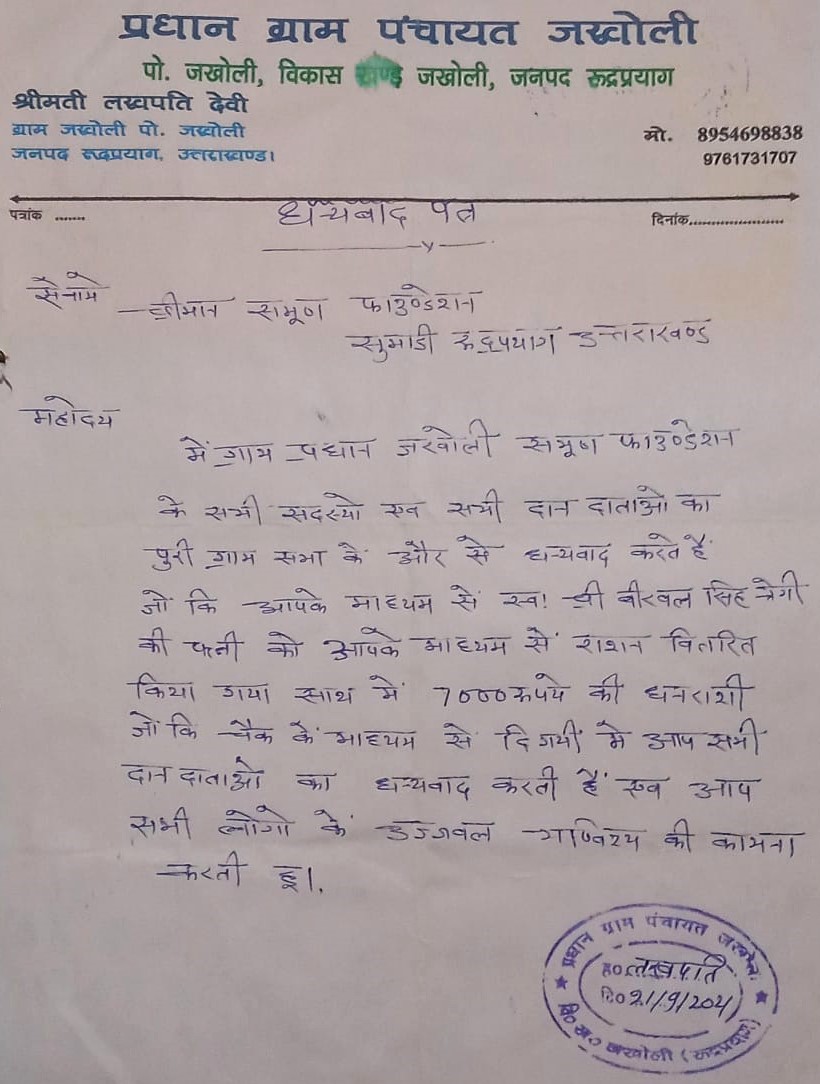 प्रधान ग्राम पंचायत जखोली
पो. जखोली, विकास खण्ड जखोली, जनपद रूद्रप्रयाग
श्रीमती लखपति देवी
ग्राम जखोली पो. जखोली
जनपद रूद्रप्रयाग, उत्तराखण्ड।
मो. 8954698838
9761731707
पत्रांक .......
धन्यबाद पत्र
दिनांक.....................
सैनामे
श्रीमान समूण फाउण्डेशन
सुमाडी रुद्रप्रयाग उत्तराखण्ड
महोदय
में ग्राम प्रधान जखोली समूण फाउण्डेशन
के सभी सदस्यो एव सभी दान दाताओ का
पुरी ग्राम सभा के और से धन्यवाद करते हैं
जो कि आपके माध्यम से स्व! श्री बीरबल सिह नेगी
की पत्नी को आपके माध्यम से राशन वितरित
किया गया साथ में 7000 रुपये की धनराशी
जो कि चैक के माध्यम से दि गयी में आप सभी
दान दाताओ का धन्यवाद करती हैं एव आप
सभी लोगो के उज्जवल भाविश्य की कामना
करती हू।.
प्रधान ग्राम पंचायत जखोली
ह० लखपति
दि० 21/9/2021
वि० ख० जखोली (रूद्रप्रयाग)